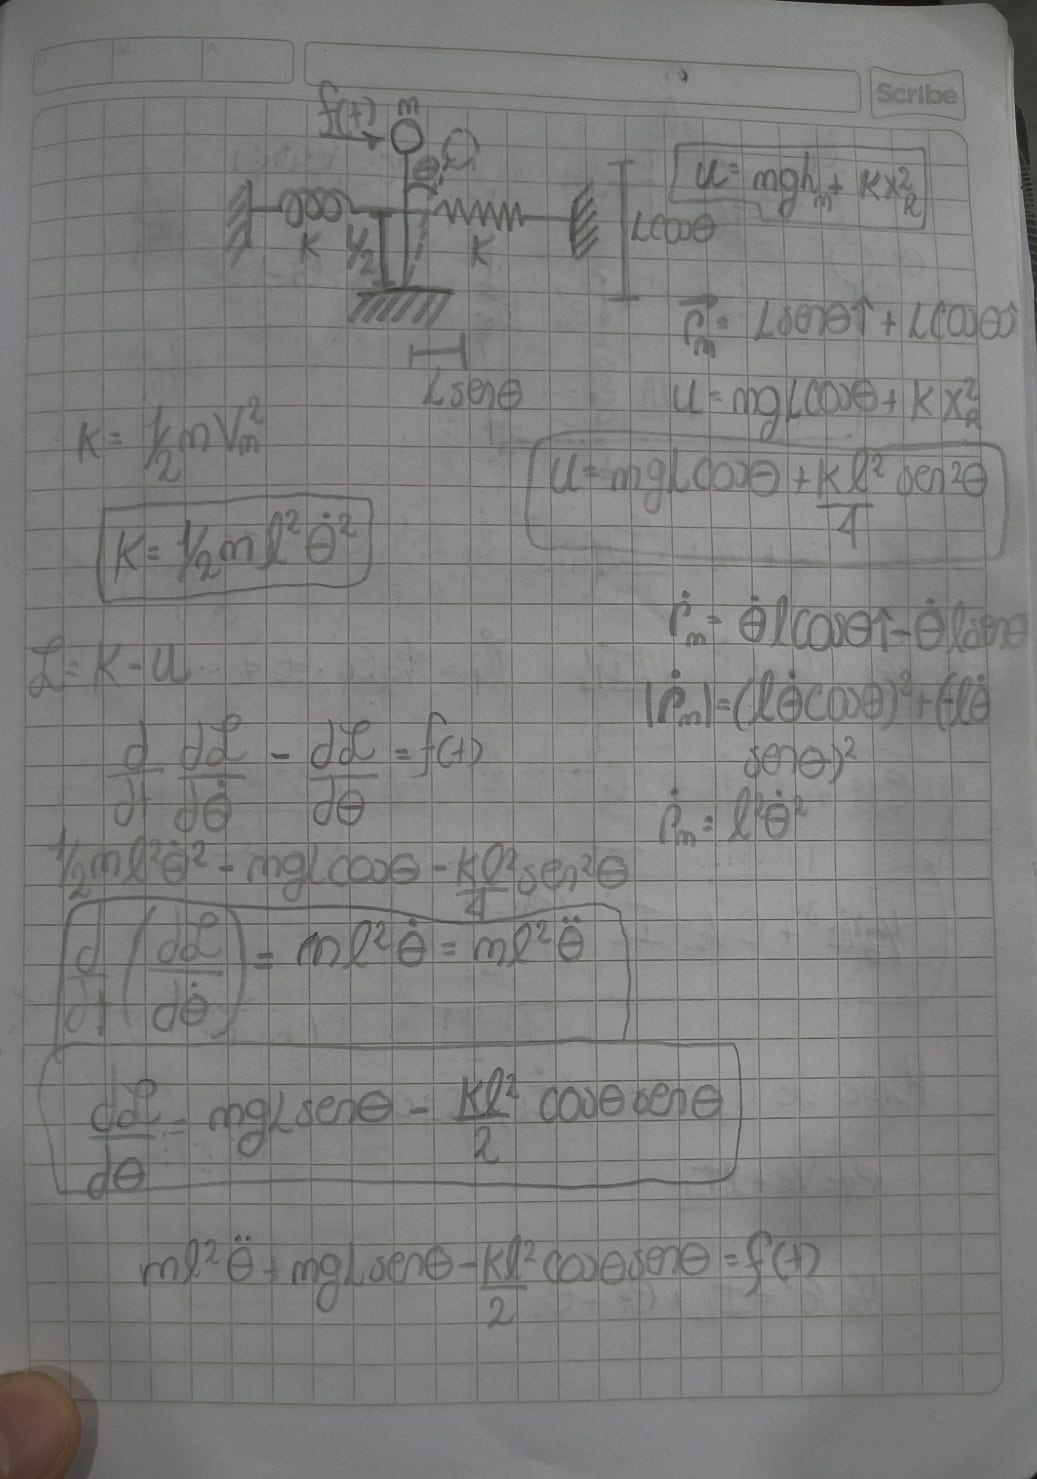 D M A
Scribe
f(t) m
θ
K L/2 K
Lcosθ
Lsenθ
U = mgh_m + Kx_R^2
r⃗_m = Lsenθ î + Lcosθ
U = mgLcosθ + K x_R^2
U = mgLcosθ + Kl²/4 sen²θ
K = 1/2 m V_m^2
K = 1/2 m l² θ̇²
ṙ_m = θ̇lcosθ î - θ̇lsenθ
|ṙ_m| = (lθ̇cosθ)² + (-lθ̇
senθ)²
ṙ_m = l²θ̇²
ℒ = K - U
d/dt dℒ/dθ̇ - dℒ/dθ = f(t)
1/2 ml²θ̇² - mgLcosθ - Kl²/4 sen²θ
d/dt (dℒ/dθ̇) = ml²θ̇ = ml²θ̈
dℒ/dθ = mgLsenθ - Kl²/2 cosθsenθ
ml²θ̈ + mgLsenθ - Kl²/2 cosθsenθ = f(t)